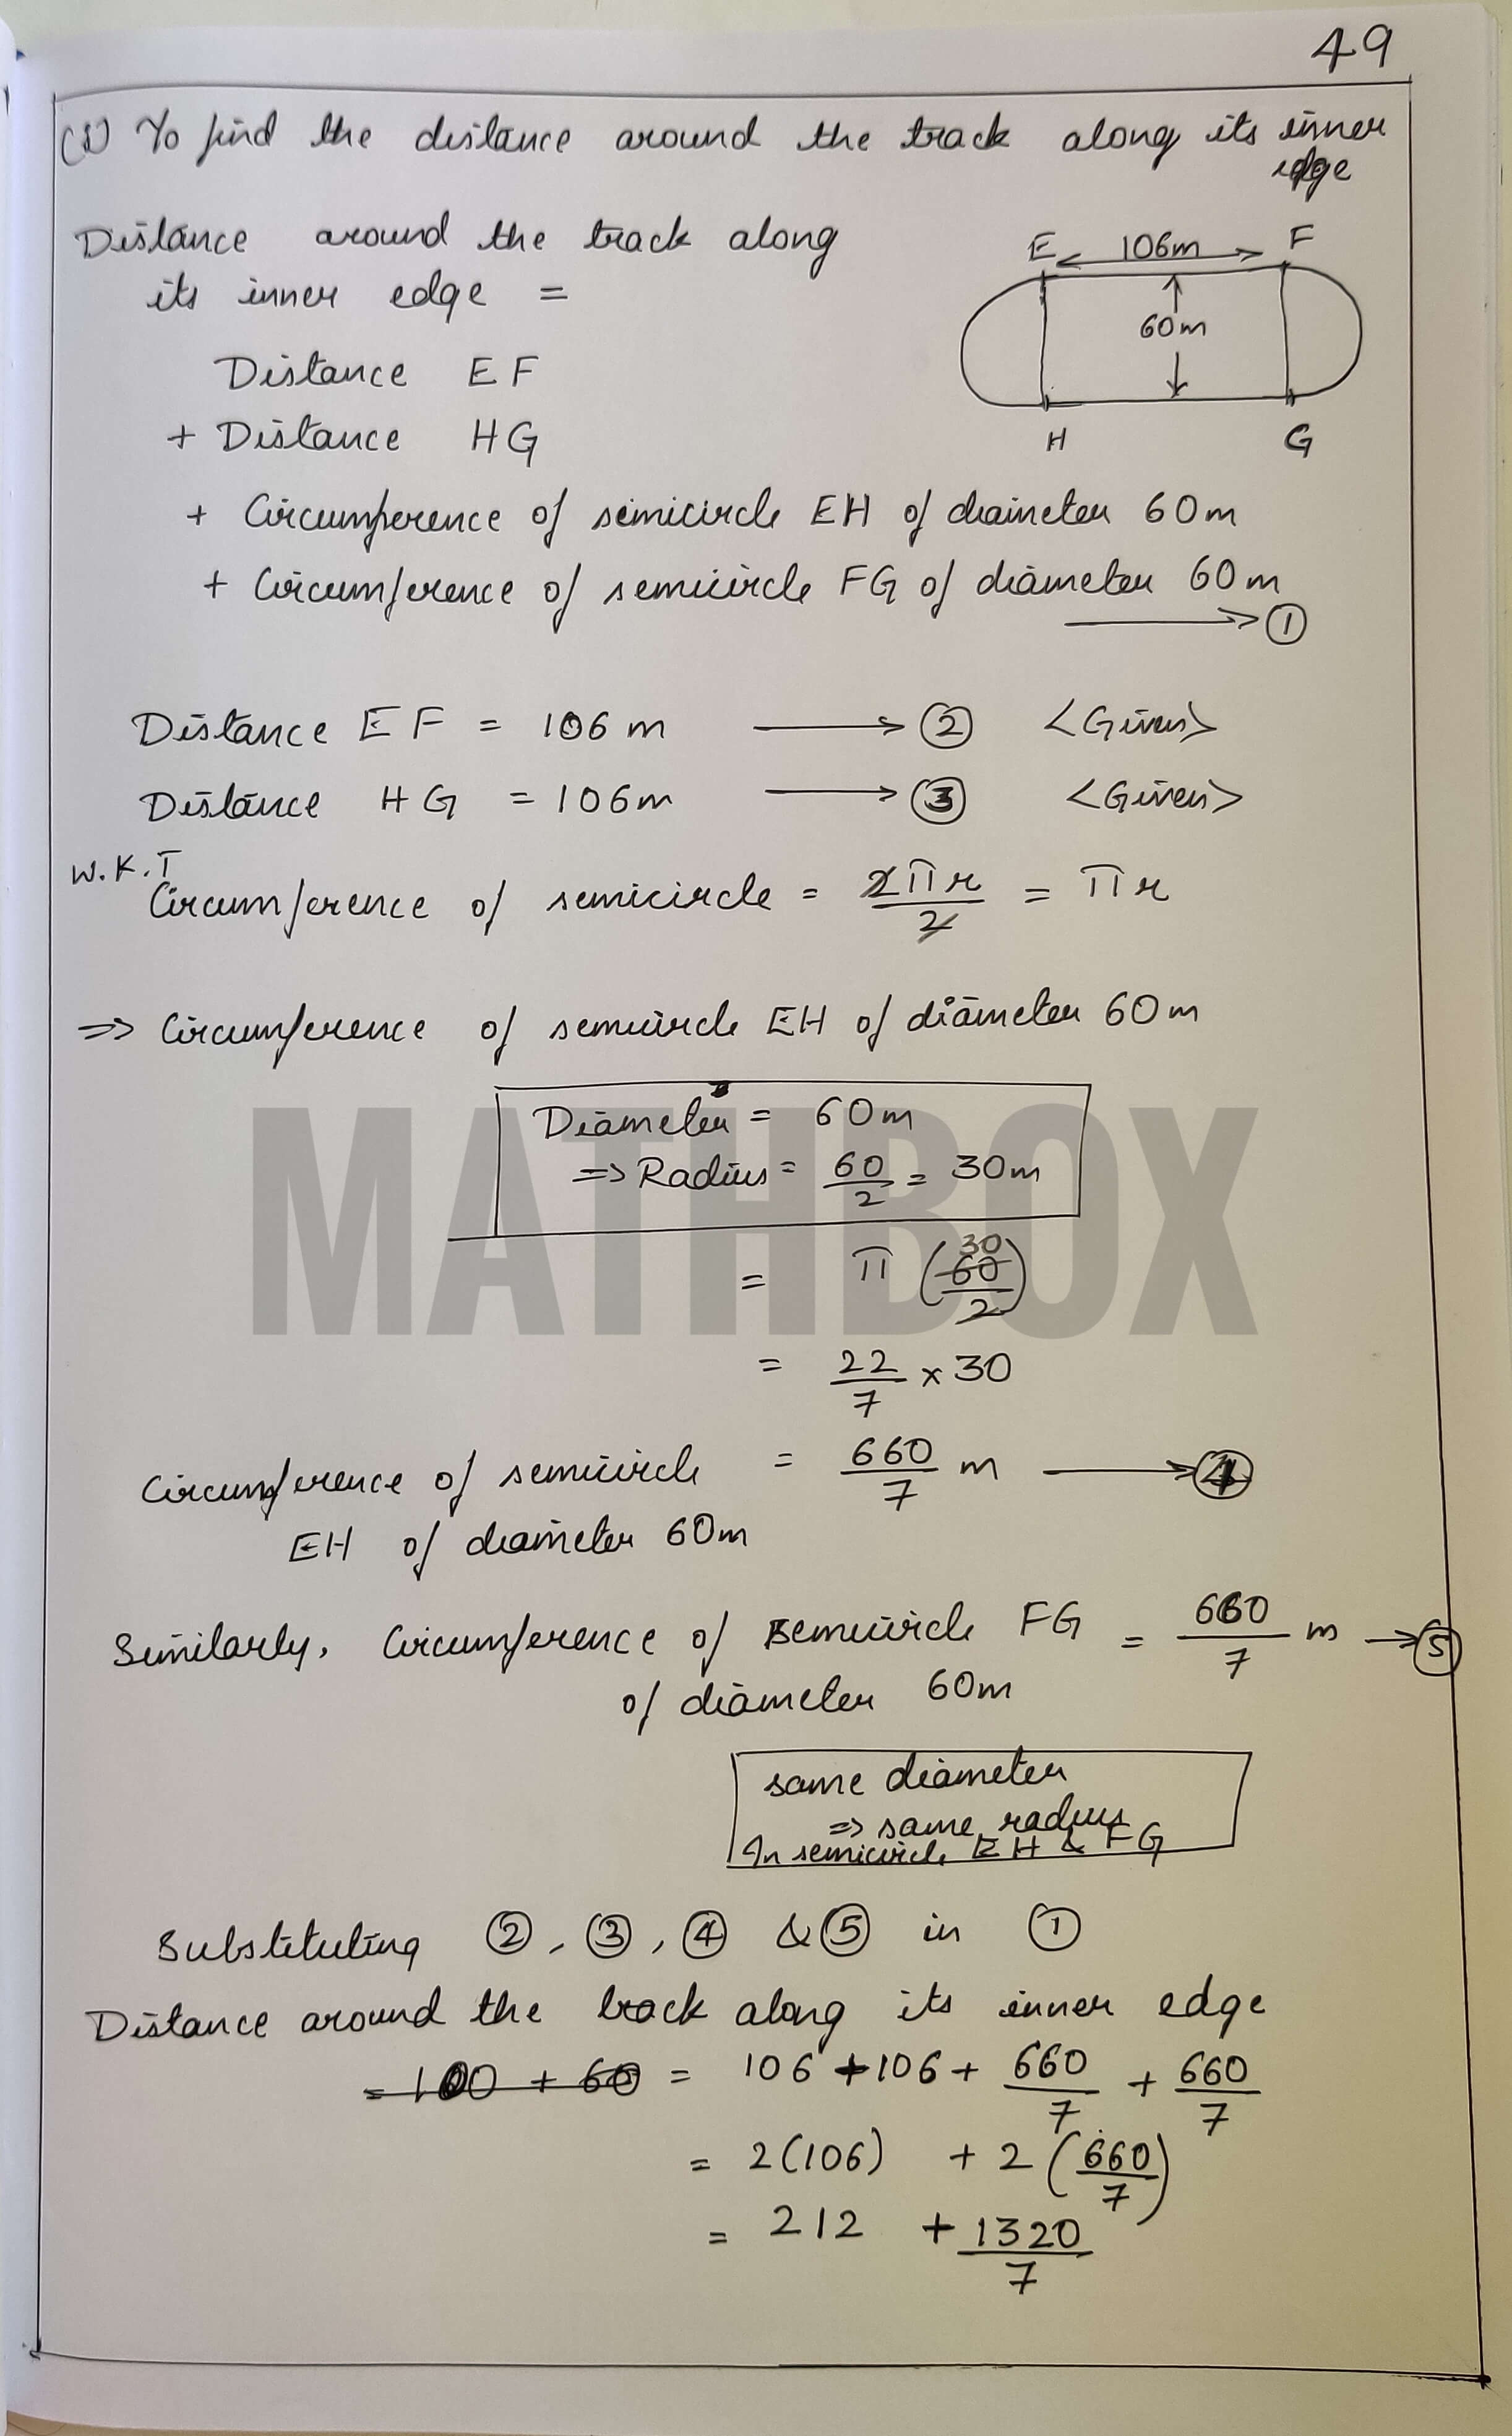 49
(i) To find the distance around the track along its inner
edge
Distance around the track along
its inner edge =
E 106m F
60m
H G
Distance EF
+ Distance HG
+ Circumference of semicircle EH of diameter 60m
+ Circumference of semicircle FG of diameter 60m
→ ①
Distance EF = 106m → ② <Given>
Distance HG = 106m → ③ <Given>
W.K.T
Circumference of semicircle = 2πr/2 = πr
⇒ Circumference of semicircle EH of diameter 60m
Diameter = 60m
⇒ Radius = 60/2 = 30m
MATHBOX
30
= π (60/2)
= 22/7 × 30
Circumference of semicircle = 660/7 m → ④
EH of diameter 60m
Similarly, Circumference of semicircle FG = 660/7 m → ⑤
of diameter 60m
same diameter
⇒ same radius
In semicircle EH & FG
Substituting ②, ③, ④ & ⑤ in ①
Distance around the track along its inner edge
= 100 + 60 = 106 + 106 + 660/7 + 660/7
= 2(106) + 2(660/7)
= 212 + 1320/7